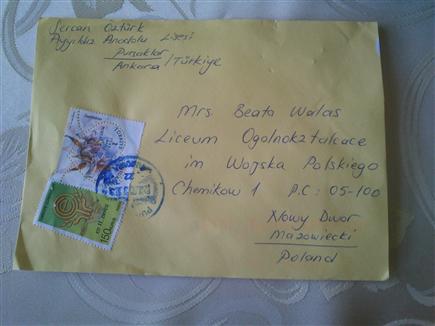 Sercan Öztürk
Ayyıldız Anadolu Lisesi
Pursaklar
Ankara/Türkiye
Mrs Beata Walas
Liceum Ogolnoksztalcace
im Wojska Polskiego
Chemikow 1 P.C: 05-100
Nowy Dwor
Mazowiecki
Poland